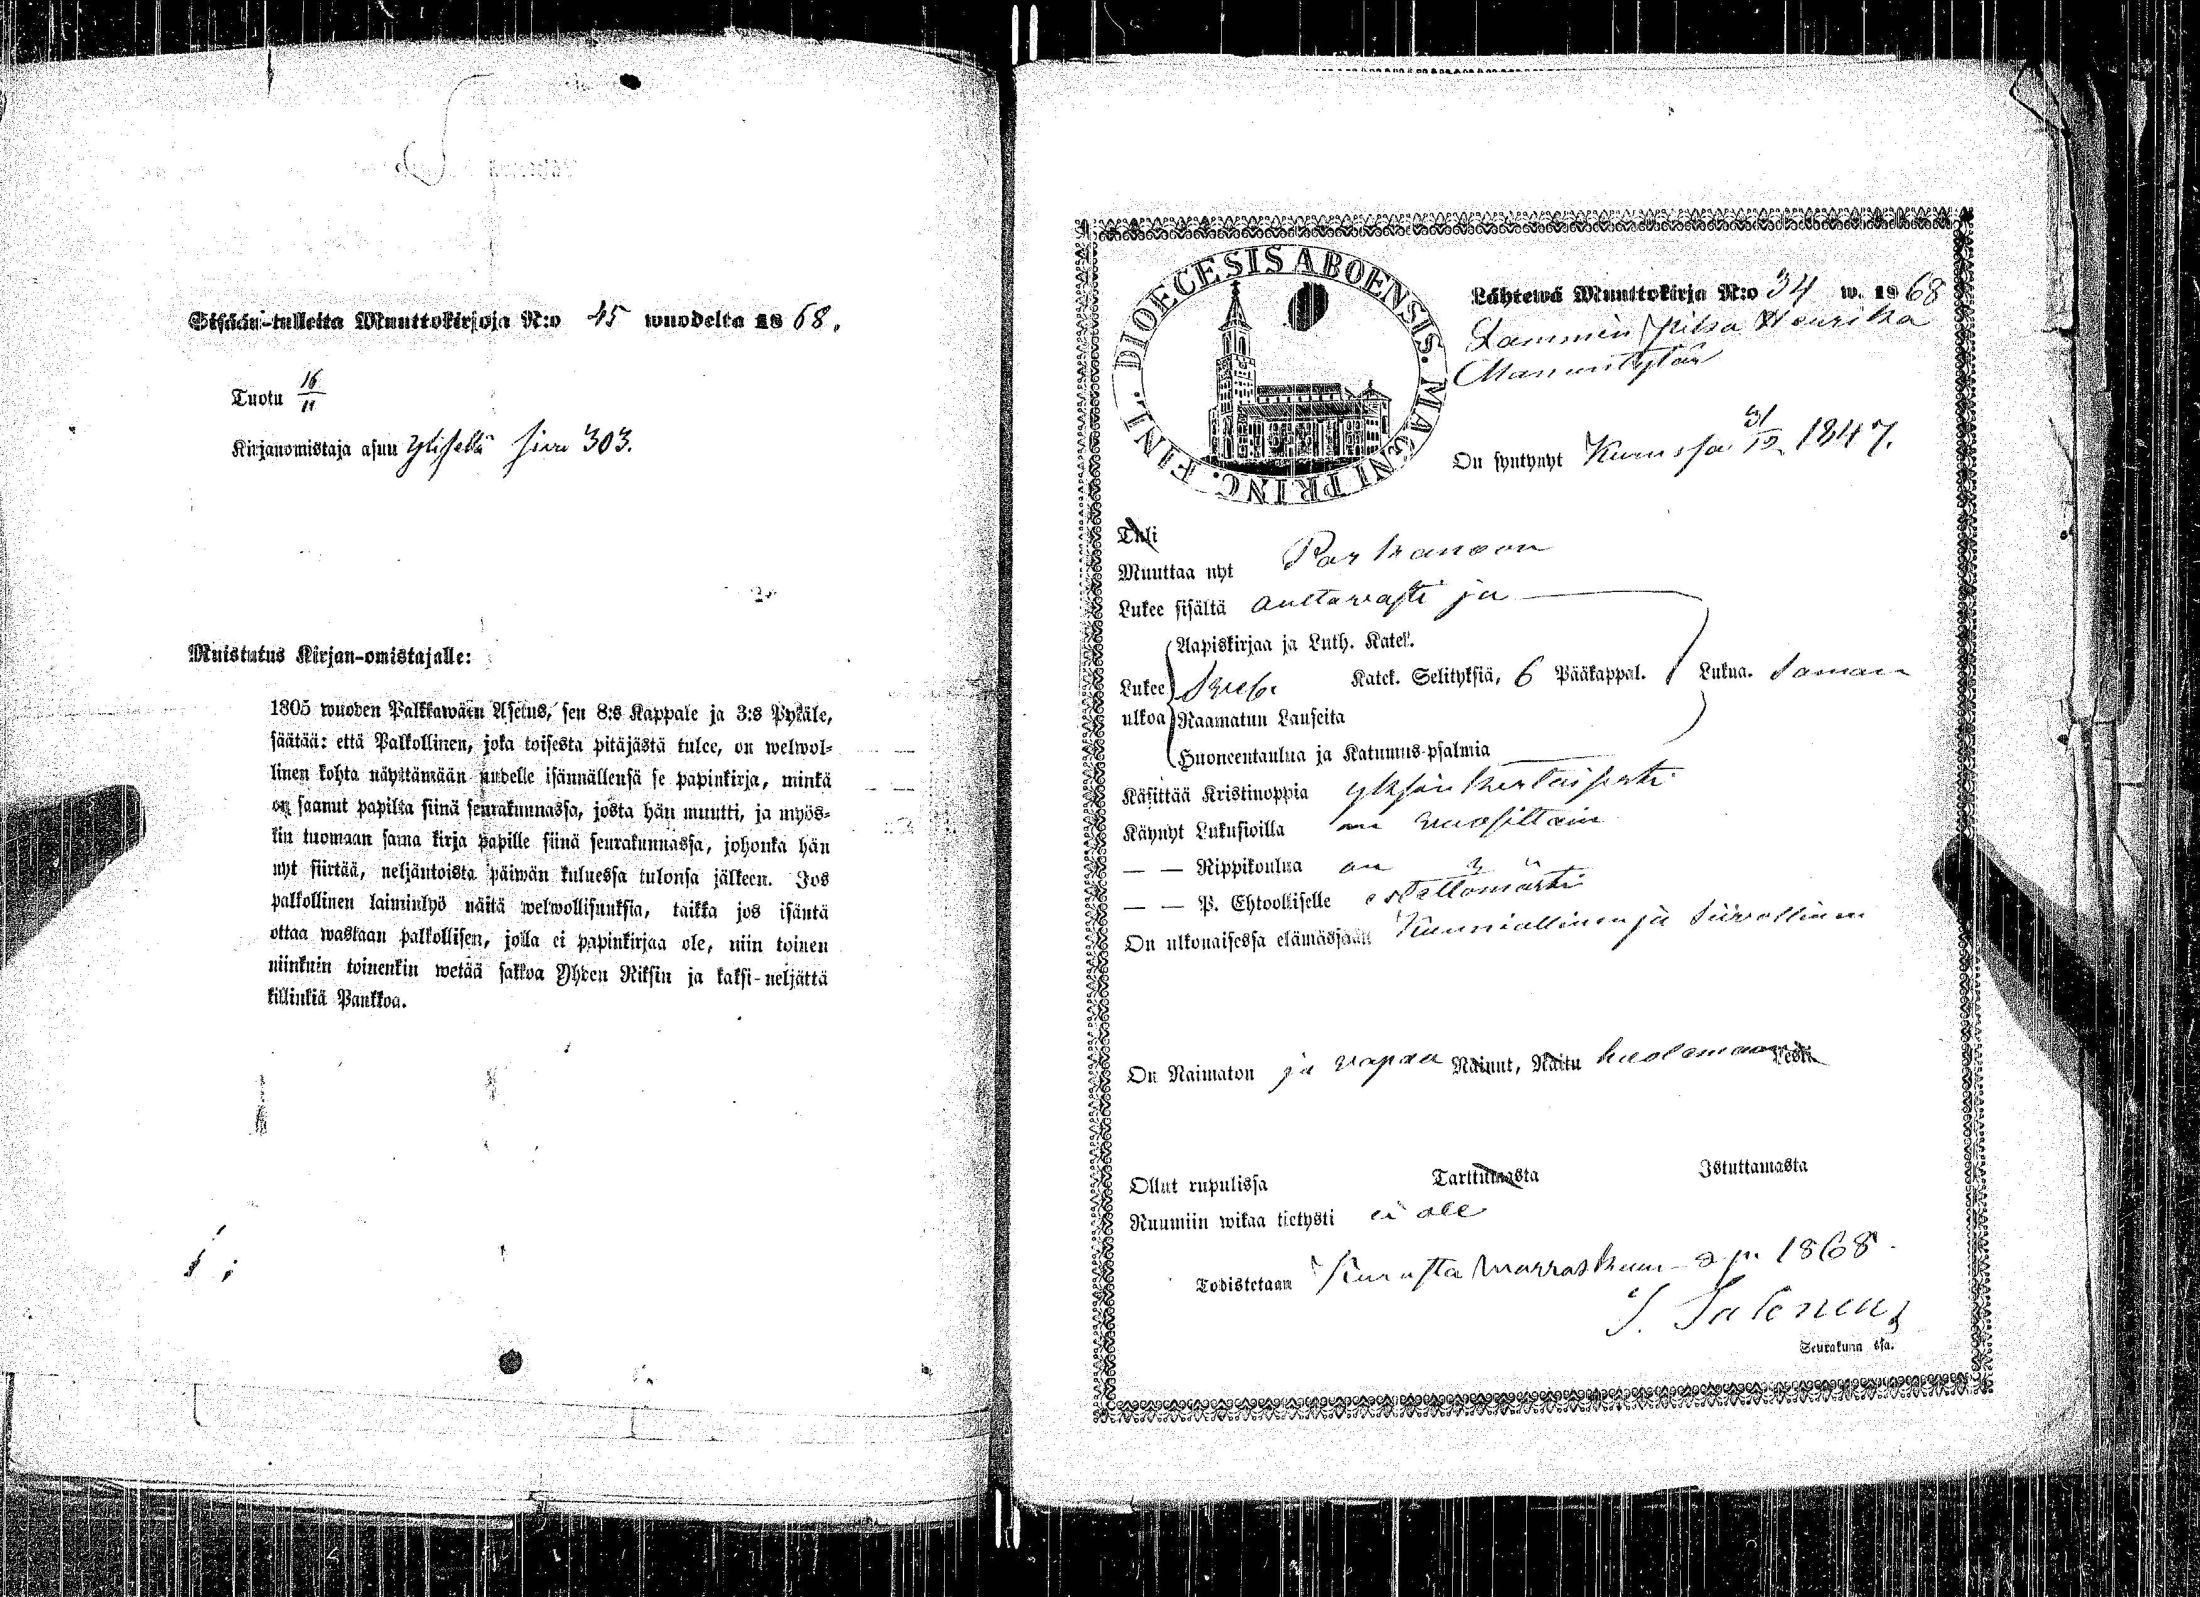 Sisään-tulleita Muuttokirjoja N:o 45 wuodelta 1868.
Tuotu 16/11
Kirjanomistaja asuu Ylisellä sivu 303.
Muistutus Kirjan-omistajalle:
1805 wuoden Palkkawäen Asetus, sen 8:s Kappale ja 3:s Pykäle,
säätää: että Palkollinen, joka toisesta pitäjästä tulee, on welwol-
linen kohta näyttämään uudelle isännällensä se papinkirja, minkä
on saanut papilta siinä seurakunnassa, josta hän muutti, ja myös-
kin tuomaan sama kirja papille siinä seurakunnassa, johonka hän
nyt siirtää, neljäntoista päiwän kuluessa tulonsa jälkeen. Jos
palkollinen laiminlyö näitä welwollisuuksia, taikka jos isäntä
ottaa wastaan palkollisen, jolla ei papinkirjaa ole, niin toinen
niinkuin toinenkin wetää sakkoa Yhden Riksin ja kaksi-neljättä
killinkiä Pankkoa.
DIOECESIS ABOENSIS. MAGNI PRINC. FINL.
Lähtewä Muuttokirja N:o 34 w. 1868
Lammin piika Henrika
Manuntytär
On syntynyt Kurussa 31/12 1847.
Tuli
Muuttaa nyt Parkanoon
Lukee sisältä auttawasti ja
Aapiskirjaa ja Luth. Katek.
Lukee Kateк. Selityksiä, 6 Pääkappal. Lukua. saman
ulkoa Raamatun Lauseita
Huoneentaulua ja Katumus-psalmia
Käsittää Kristinoppia yksinkertaisesti
Käynyt Lukusioilla on wuosittain
— — Rippikoulua on
— — P. Ehtoolliselle estettömästi
On ulkonaisessa elämässään Kunniallinen ja siiwollinen
On Naimaton ja wapaa Nainut, Naitu huolemaan Leski
Ollut rupulissa Tarttumasta Istuttamasta
Ruumiin wikaa tietysti ei ole
Todistetaan Kurusta marraskuun 2 p. 1868.
J. Salonen,
Seurakunnassa.